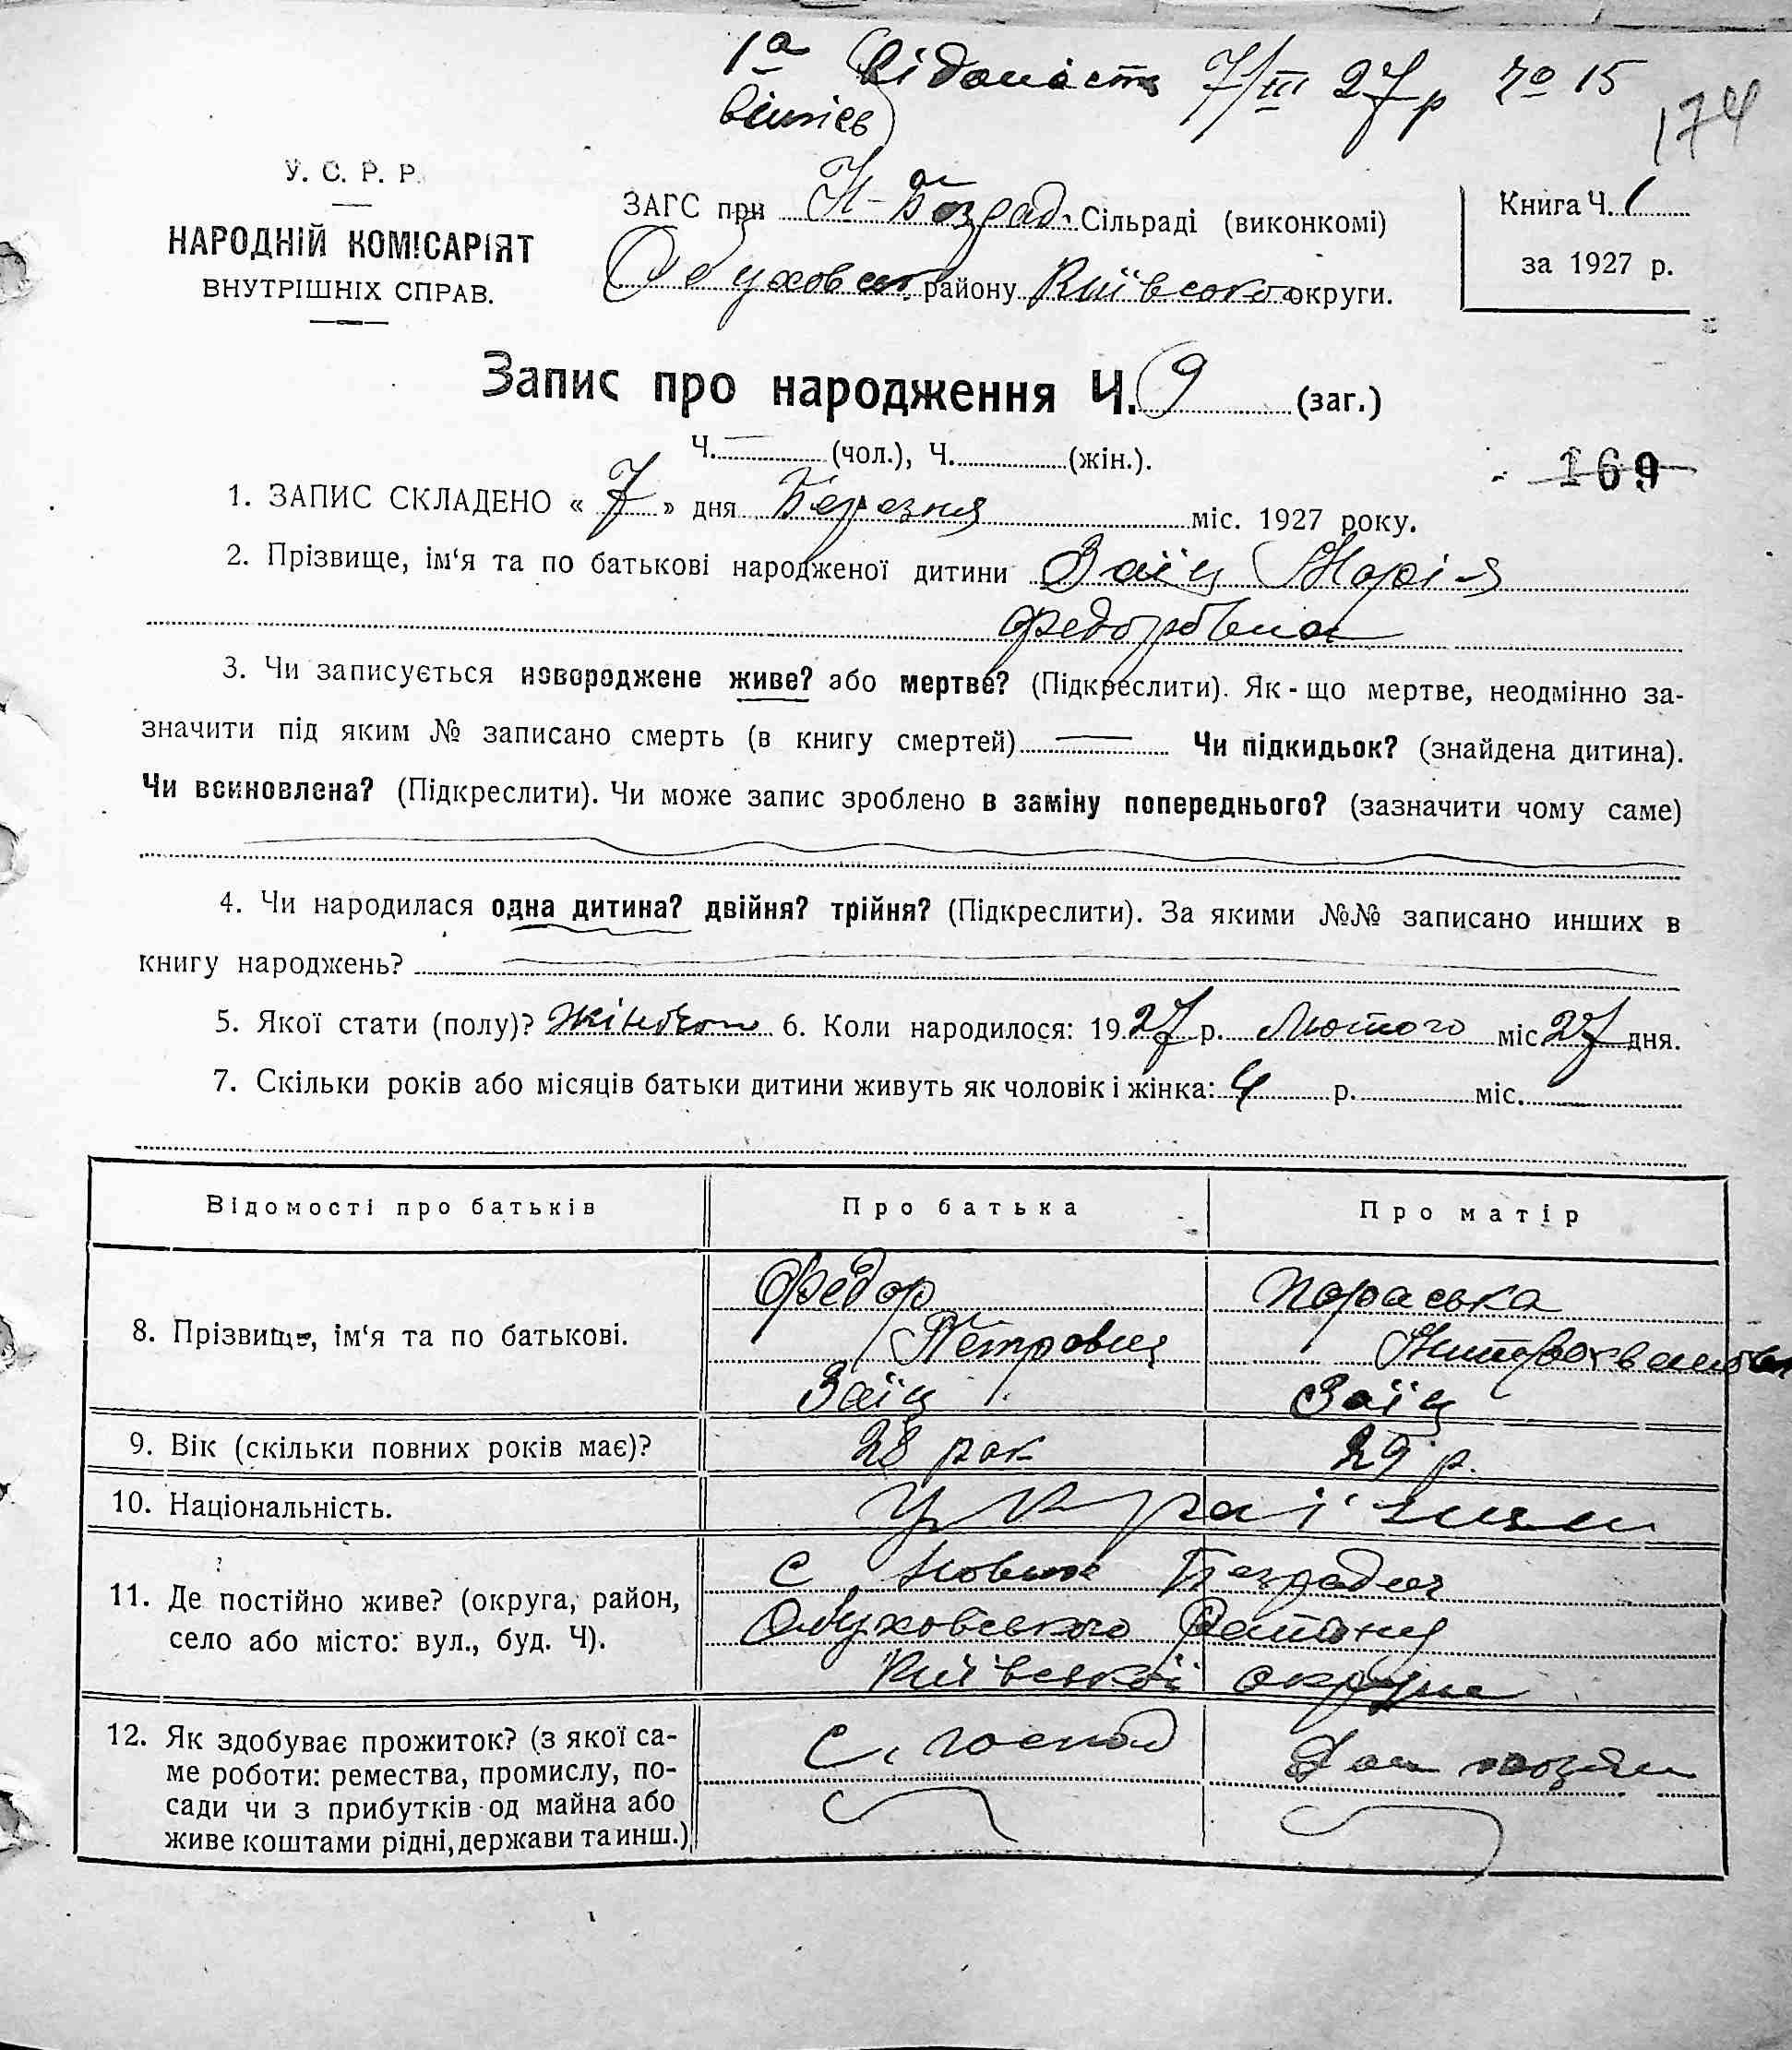 1а Відомість 7/III 27р № 15
174
У. С. Р. Р.
НАРОДНІЙ КОМІСАРІЯТ
ВНУТРІШНІХ СПРАВ.
ЗАГС при Н-Безрад. Сільраді (виконкомі)
Обуховськ. району Київської округи.
Книга Ч. 1
за 1927 р.
Запис про народження Ч. 9 (заг.)
Ч. — (чол.), Ч. (жін.).
169
1. ЗАПИС СКЛАДЕНО « 7 » дня Березня міс. 1927 року.
2. Прізвище, ім‘я та по батькові народженої дитини Заїц Марія
Федоровна
3. Чи записується новороджене живе? або мертве? (Підкреслити). Як-що мертве, неодмінно за-
значити під яким № записано смерть (в книгу смертей) — Чи підкидьок? (знайдена дитина).
Чи всиновлена? (Підкреслити). Чи може запис зроблено в заміну попереднього? (зазначити чому саме)
4. Чи народилася одна дитина? двійня? трійня? (Підкреслити). За якими №№ записано инших в
книгу народжень?
5. Якої стати (полу)? 6. Коли народилося: 1927 р. Лютого міс. 27 дня.
7. Скільки років або місяців батьки дитини живуть як чоловік і жінка: 4 р. міс.
Відомості про батьків Про батька Про матір
8. Прізвище, ім‘я та по батькові.
Федор Параська
Петрович
Заїц Заїц
9. Вік (скільки повних років має)? 28 рок 29 р.
10. Національність. Українци
11. Де постійно живе? (округа, район,
село або місто: вул., буд. Ч).
с Нових Безрадич
Обуховського Району
Київської округи
12. Як здобуває прожиток? (з якої са-
ме роботи: ремества, промислу, по-
сади чи з прибутків од майна або
живе коштами рідні, держави та инш.)
С. господ Дом хозяй